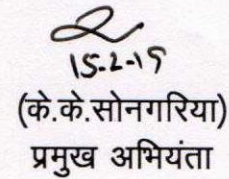 15-2-19
(के.के.सोनगरिया)
प्रमुख अभियंता